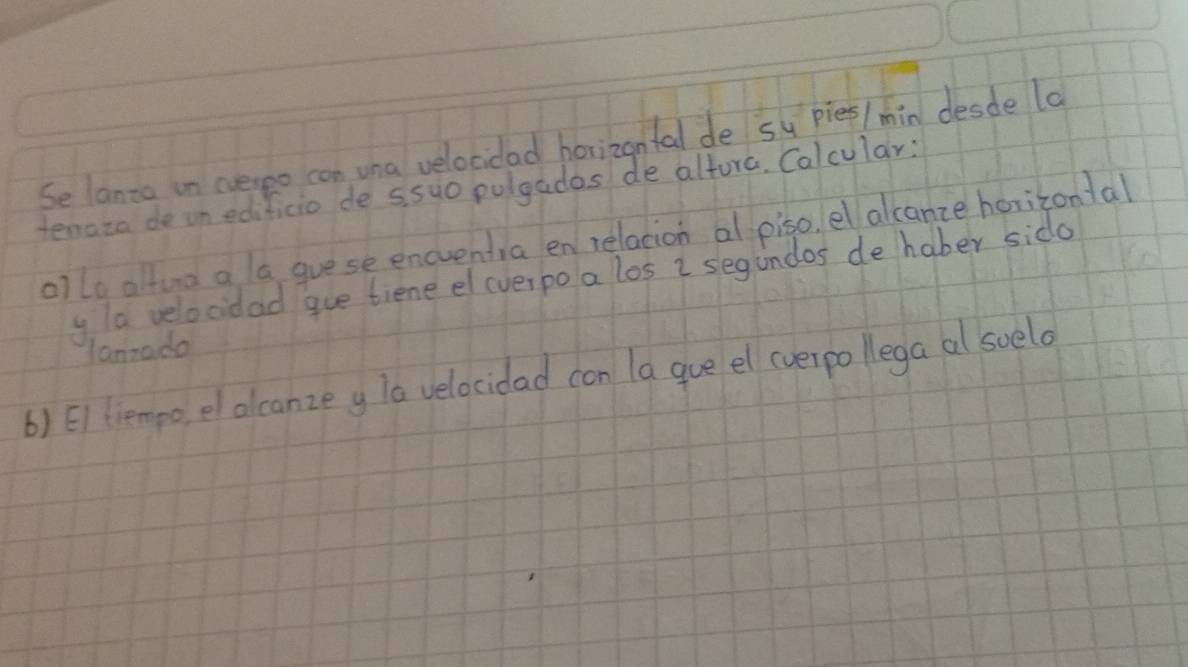 Se lanza un cuerpo con una velocidad horizontal de 54 pies/min desde la
tenaza de un edificio de 5540 pulgadas de altura. Calcular:
a) La altura a la que se encuentra en relacion al piso, el alcanze horizontal
y la velocidad que tiene el cuerpo a los 2 segundos de haber sido
lanzado
b) El tiempo, el alcanze y la velocidad con la que el cuerpo llega al suelo